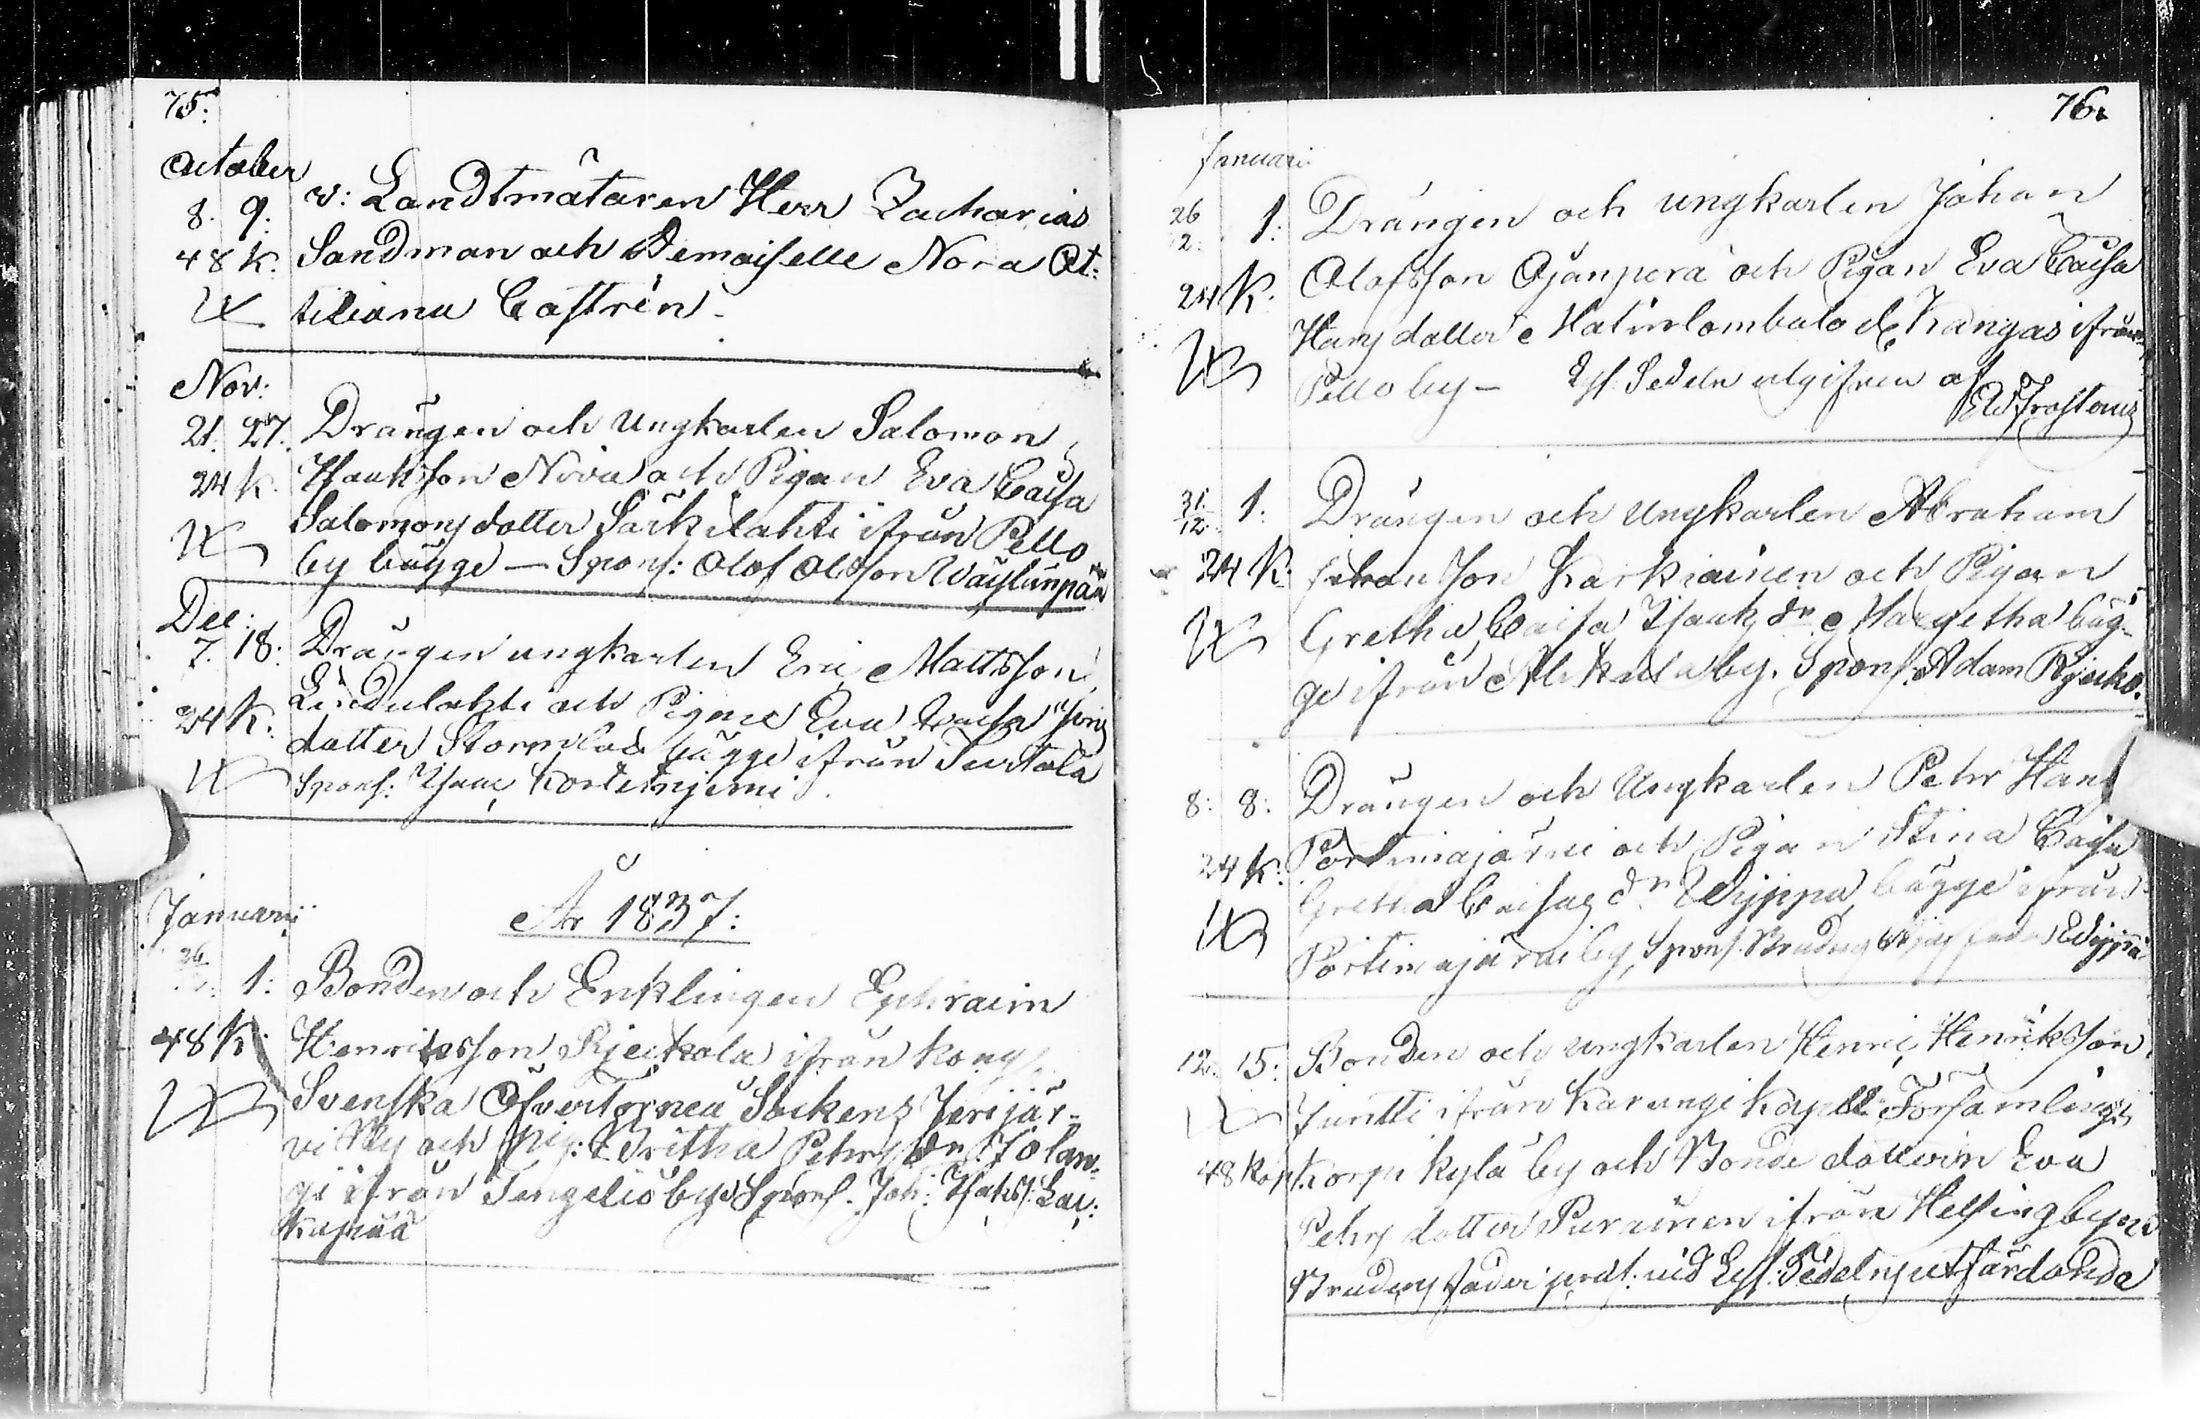 75:
October
8. 9. v: Landtmätaren Herr Zacharias
48 k. Sandman och Demoiselle Nora Ot:
tiliana Castrén.
Nov:
21. 27. Drängen och Ungkarlen Salomon
24 k. Isaksson Niva och Pigan Eva Caisa
Salomonsdotter Särkilahti ifrån Pello
by bägge — Spons: Olof Olofson
Dec:
7. 18. Drängen ungkarlen Eric Mattsson
24 K. och Pigan Eva Caisa
dotter bägge ifrån Turtola
Spons: Isaac Kortetnjemi.
Januarii
År 1837:
26 1: Bonden och Enklingen Ephraim
48 K Henriksson Rjeckola ifrån kong
Svenska Öfvertorneå Sockens Jerijär-
vi By och pig: Britha Petersdr Jolan-
gi ifrån Tengeliö by Spons. Joh:
76.
Januari
26/12. 1: Drängen och ungkarlen Johan
24 K. Olofsson Ojanperä och Pigan Eva Caisa
Hansdotter Kangas ifrån
Pello by — Lyf. Sedeln utgifven af
31/12 1: Drängen och Ungkarlen Abraham
24 K. Johansson Karkiainen och Pigan
Gretha Caisa Isaks dr Margetha bäg-
ge ifrån Alkula by. Spons. Adam Rjecko.
8: 8: Drängen och Ungkarlen Petr Hans
24 K: Portimojärvi och Pigan Stina Caisa
Gretha Caisas dr Wyppa, bägge ifrån
Portimojärvi by, Spons. Brudens
12. 15: Bonden och ungkarlen Henric Henriksson
Juntti ifrån Karungi Kapell Församlings
48 kop Korpikylä by och Bonde dottern Eva
Petersdotter Purainen ifrån Helsingbyn
Brudens fader vid Lyf: Sedelns utfärdande